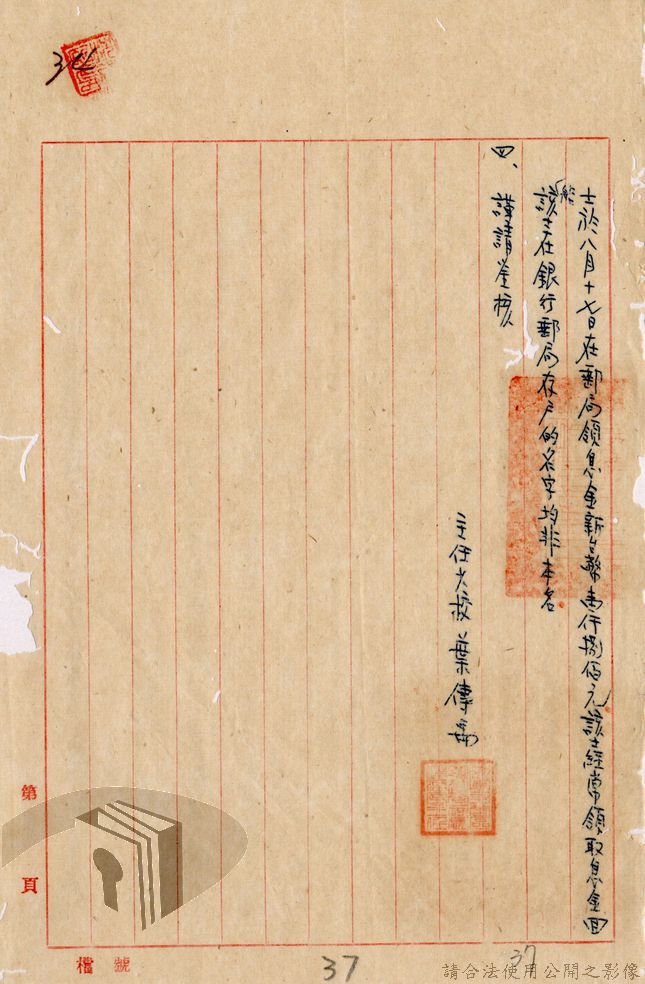 士於八月十七日在郵局領息金新台幣壹仟捌佰元該士經常領取息金回
能
該士在銀行郵局存戶的名字均非本名
四、謹請鑒核
主任少校葉傳
第 頁
檔 號
37
37
請合法使用公開之影像